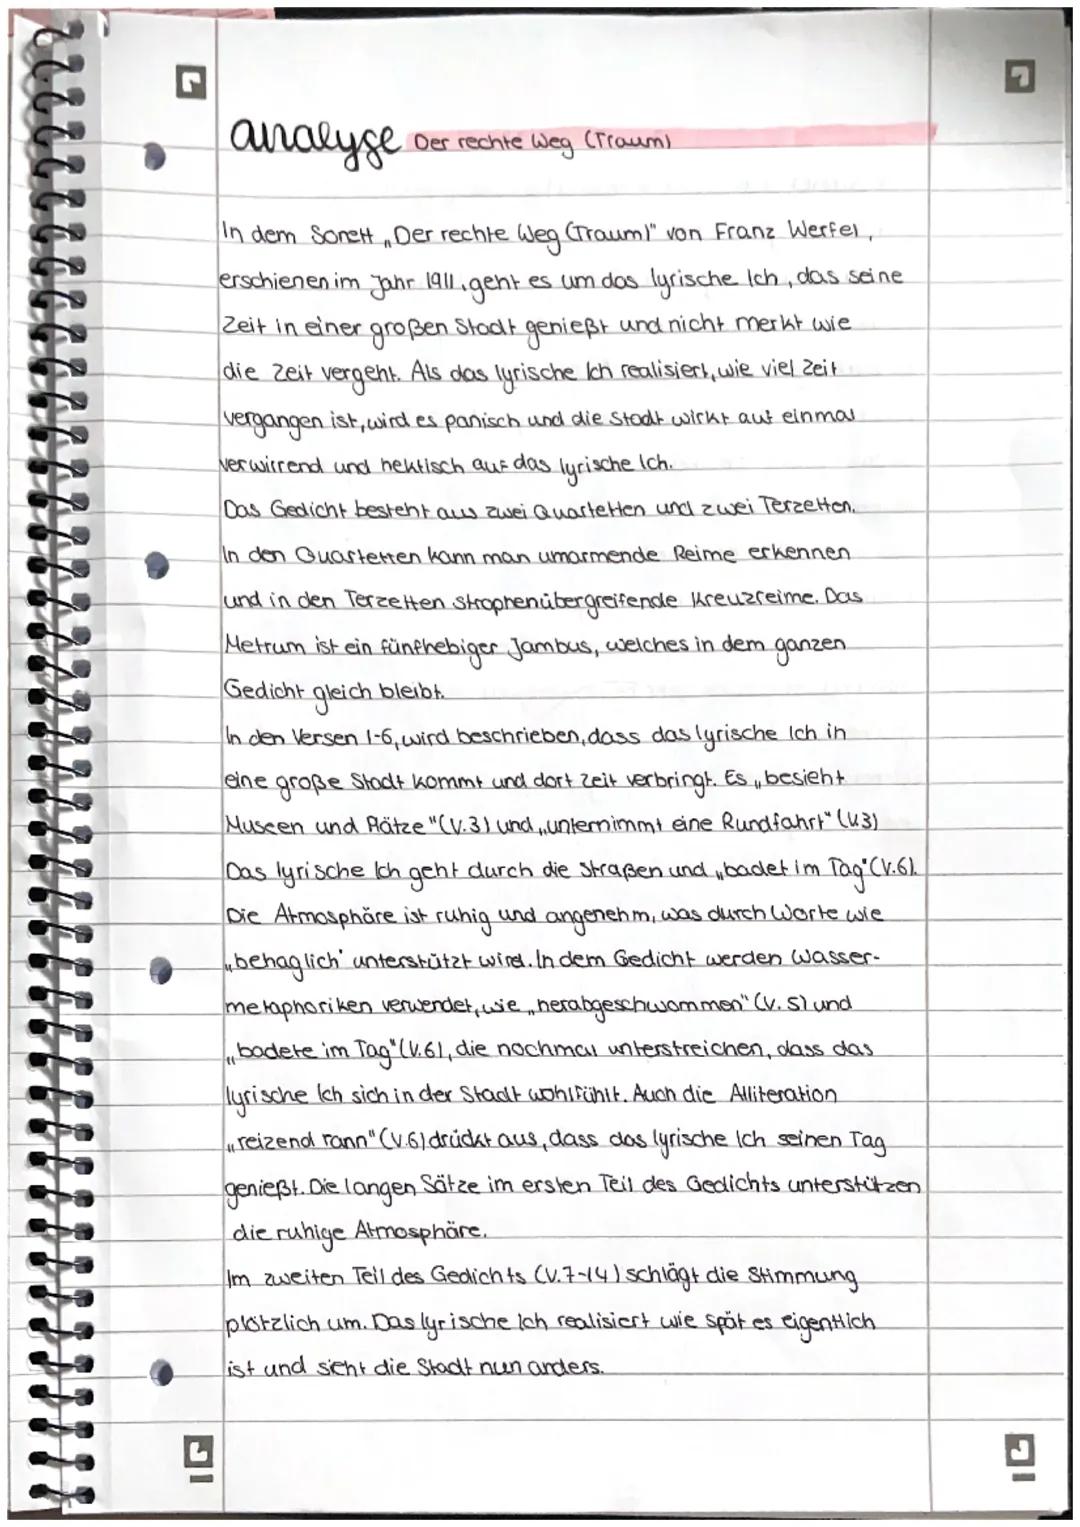 analyse Der rechte Weg (Traum)
In dem Sonett „Der rechte Weg (Traum)" von Franz Werfel,
erschienen im Jahr 1911, geht es um das lyrische Ich, das seine
Zeit in einer großen Stadt genießt und nicht merkt wie
die Zeit vergeht. Als das lyrische Ich realisiert, wie viel Zeit
vergangen ist, wird es panisch und die Stadt wirkt auf einmal
verwirrend und hektisch auf das lyrische Ich.
Das Gedicht besteht aus zwei Quartetten und zwei Terzetten.
In den Quartetten kann man umarmende Reime erkennen
und in den Terzetten strophenübergreifende Kreuzreime. Das
Metrum ist ein fünfhebiger Jambus, welches in dem ganzen
Gedicht gleich bleibt.
In den Versen 1-6, wird beschrieben, dass das lyrische Ich in
eine große Stadt kommt und dort Zeit verbringt. Es „besieht
Museen und Plätze" (V.3) und „unternimmt eine Rundfahrt" (V.3)
Das lyrische Ich geht durch die Straßen und „badet im Tag" (V.6).
Die Atmosphäre ist ruhig und angenehm, was durch Worte wie
„behaglich" unterstützt wird. In dem Gedicht werden Wasser-
metaphoriken verwendet, wie „herabgeschwommen" (V. 5) und
„badete im Tag" (V.6), die nochmal unterstreichen, dass das
lyrische Ich sich in der Stadt wohlfühlt. Auch die Alliteration
„reizend rann" (V.6) drückt aus, dass das lyrische Ich seinen Tag
genießt. Die langen Sätze im ersten Teil des Gedichts unterstützen
die ruhige Atmosphäre.
Im zweiten Teil des Gedichts (V.7-14) schlägt die Stimmung
plötzlich um. Das lyrische Ich realisiert wie spät es eigentlich
ist und sieht die Stadt nun anders.